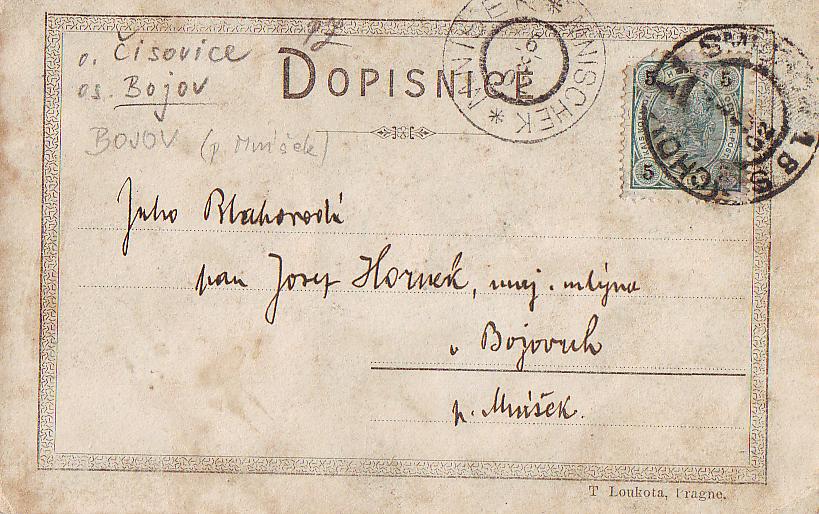 o. Čisovice
os. Bojov
BOJOV (p. Mníšek)
DOPISNICE
MNÍŠEK * MNISCHEK *
5 HELLER 5
5
SMICHOV
Jeho Blahorodí
pan Josef Hornek, maj. mlýna
v Bojovech
p. Mníšek.
T Loukota, Prague.